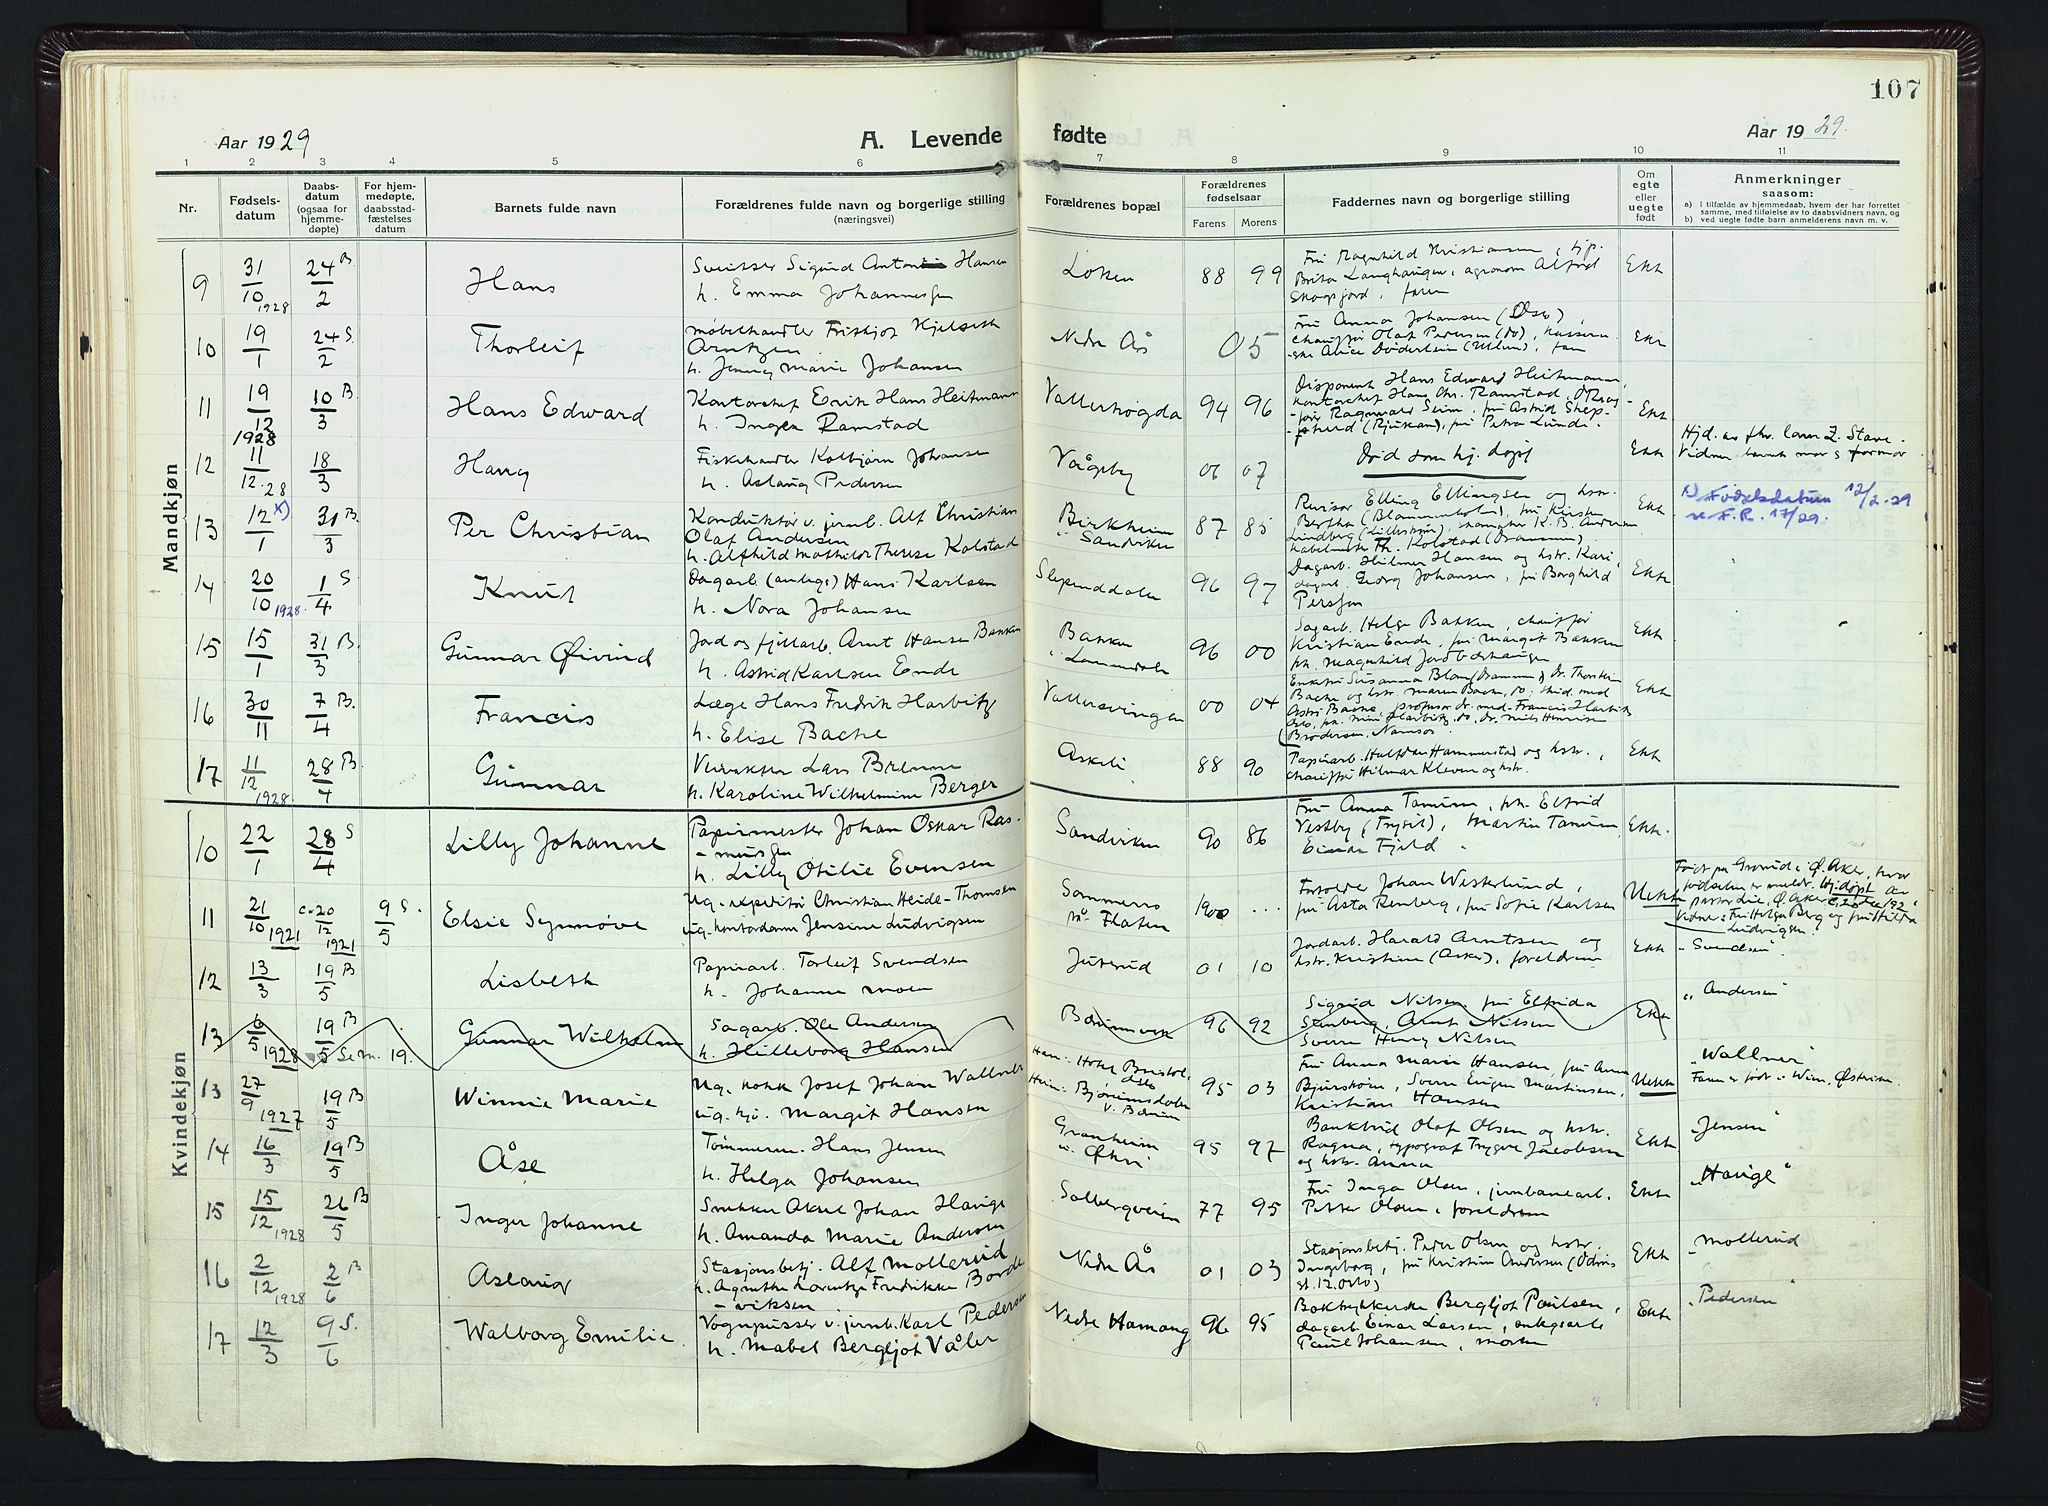 107
Aar 1929
A. Levende
fødte
Aar 1929.
1 2 3 4 5 6 7 8 9 10 11
Nr.
Fødsels-
datum
Daabs-
datum
(ogsaa for
hjemme-
døpte)
For hjem-
medøpte,
daabsstad-
fæstelses
datum
Barnets fulde navn
Forældrenes fulde navn og borgerlige stilling
(næringsvei)
Forældrenes bopæl
Forældrenes
fødselsaar
Farens Morens
Faddernes navn og borgerlige stilling
Om
egte
eller
uegte
født
Anmerkninger
saasom:
a) i tilfælde av hjemmedaab, hvem der har forrettet
samme, med tilføielse av to daabsvidners navn, og
b) ved uegte fødte barn anmelderens navn m. v.
Mandkjøn
9 31/10 1928 24/2 B. Hans
Sveitser Sigurd Anton Hansen
h. Emma Johannessen
Løken 88 99
Fru Ragnhild Kristiansen, hjp.
Brita Langhaugen, agronom Alfred
Skogsfjord, faren
Ekte
10 19/1 24/2 S. Thorleif
Møbelhandler Fritjof Kjelseth
Arntzen
h. Jenny Marie Johansen
Nedre Ås 05
Fru Anna Johansen (Oslo)
chauffør Olaf Pedersen (do),
Ekte
11 19/12 1928 10/3 B Hans Edward
Kontorchef Erik Hans Heitmann
h. Inger Ramstad
Vallerhøgda 94 96
Disponent Hans Edward Heitmann,
kontorchef Hans Chr. Ramstad,
Ragnvald Seim, fru Astrid Skep-
(Rjukan), fru Petra Lunde.
Ekte
12 11/12.28 18/3 Harry
Fiskehandler Kolbjørn Johansen
h. Aslaug Pedersen
Vågeby 06 07
Død som hj. døpt
Ekte
Vidner barnets mor & farmor
13 12/1 x) 31/3 B. Per Christian
Konduktør v. jernb. Alf Christian
Olaf Andersen
h. Alfhild Mathilde Therese Kolstad
Birkheim
Sandviken
87 85
Revisor Elling Ellingsen og hstr.
Bertha (Blommenholm), fru Kirsten
Lindberg (Lillestrøm), K. B. Andersen
Th. Kolstad (Drammen)
Ekte
x) Fødselsdatum 12/2.29
se F.R. 17/29.
14 20/10 1928. 1/4 S Knut
Dagarb. (anlegs) Hans Karlsen
h. Nora Johansen
Slependdalen 96 97
Dagarb. Hilmer Hansen og hstr. Kari,
dagarb. Georg Johansen, fru Borghild
Persson
Ekte
15 15/1 31/3 B. Gunnar Øivind
Jord og fjellarb. Arnt Hansen Bakken
h. Astrid Karlsen Ende
Bakken
Lommedalen
96 00
Sagarb. Helge Bakken, chauffør
Kristian Ende, fru Margit Bakken
frk. Magnhild Jordbærhaugen
Ekte
16 30/11 7/4 B. Francis
Læge Hans Fredrik Harbitz
h. Elise Backe
Vallersvingen 00 04
Enkefru Susanna Blom (Drammen), dr. Thorstein
Backe og hstr. Maren Backe, do. stud. med
Astri Backe, professor dr. med. Francis Harbitz
Oslo, frk. Mimi Harbitz, do, dr. Nils Henrik
Brodersen, Namsos.
Ekte
17 11/12 1928. 28/4 B Gunnar
Lars Brenne
h. Karoline Wilhelmine Berger
Askeli 88 90
Papirarb. Halfdan Hammerstad og hstr.,
chauffør Hilmar Kleven og hstr.
Ekte
Kvindekjøn
10 22/1 28/4 S Lilly Johanne
Papirmester Johan Oskar Ras-
-mussen
h. Lilly Otilie Evensen
Sandviken 90 86
Fru Anna Tanum, frk. Elfrid
Vestby (Trysil), Martin Tanum
Einar Fjeld.
Ekte.
11 21/10 1921 c. 20/12 1921 9/5 S. Elsie Synnøve
Ug. expeditør Christian Heide-Thomsen
ug. kontordame Jensine Ludvigsen
Sommerro
pr. Flaten
1900 ...
Forvalter Johan Westerlund,
fru Asta Renberg, fru Sofie Karlsen
Uekte
Født på Grorud i Ø. Aker, hvor
fødselen er meldt. Hjdøpt av
pastor Lie, Ø. Aker c. 20 dec 1921
Vidner: Fru Helga Berg og fru Hilda
Ludvigsen.
12 13/3 19/5 B Lisbeth
Papirarb. Torleif Svendsen
h. Johanne Moen
Juterud 01 10
Jordarb. Harald Arntsen og
hstr. Kristine (Asker), foreldrene
Ekte
"Svendsen".
13 6/5 1928 19/5 B Se m. 19. Gunnar Wilhelm
Sagarb. Ole Andersen
h. Hilleborg Hansen
Bærumsverk 96 92
Sigrid Nilsen, fru Elfrida
Stenberg, Arnt Nilsen,
Sverre Henry Nilsen
Ekte
"Andersen"
13 27/9 1927 19/5 B Winnie Marie
Ug. kokk Josef Johan Wallner
ug. hj. Margit Hansen
Han: Hotel Bristol,
Oslo
Hun: Bjørumsdalen
v. Bærum
95 03
Fru Anna Marie Hansen, fru Anna
Bjurstrøm, Sverre Eugen Martinsen,
Kristian Hansen
Uekte
"Wallner"
Faren er født i Wien, Østerrike.
14 16/3 19/5 B Åse
Tømmerm. Hans Jensen
h. Helga Johansen
Granheim
v. Økri
95 97
Banktrid Olaf Olsen og hstr.
Ragna, typograf Trygve Jacobsen
og hstr. Anna
Ekte
"Jensen"
15 15/12 1928 26/5 B Inger Johanne
Snekker Aksel Johan Hauge
h. Amanda Marie Andersen
Solbergveien 77 95
Fru Inga Olsen, jernbanearb.
Petter Olsen, foreldrene
Ekte
"Hauge"
16 2/12 1928 2/6 B Aslaug
Stasjonsbetj. Alf Mollerud
h. Agnethe Lorentze Fredrikke Borde-
-viksen
Nedre Ås 01 03
Stasjonsbetj. Peder Olsen og hstr.
Ingeborg, fru Kristine Andersen (Odins
gt. 12. Oslo)
Ekte
"Mollerud
17 12/3 9/6 S. Walborg Emilie
Vognpusser v. jernb. Karl Pedersen
h. Mabel Bergljot Våler
Nedre Hamang 96 95
Boktrykkerske Bergljot Paulsen,
dagarb. Einar Larsen, anlegsarb.
Paul Johansen, moren
Ekte
"Pedersen"